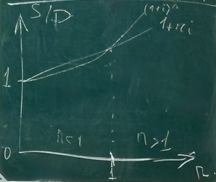 S/P
(1+i)ⁿ
1+ni
1
n<1 n>1
0
1
n